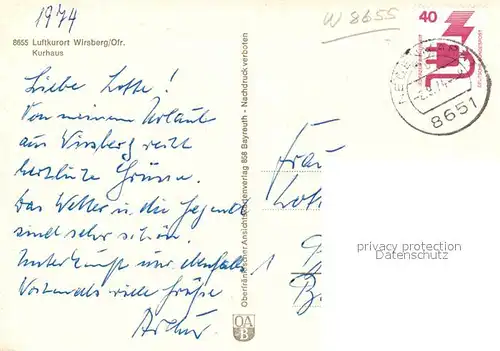 1974
W 8655
8655 Luftkurort Wirsberg/Ofr.
Kurhaus
Liebe Lotte!
Von meinem Urlaub
aus Wirsberg recht
herzliche Grüsse.
Das Wetter u. die Gegend
sind sehr schön.
Unterkunft
viele Grüße
Arthur
Oberfränkischer Ansichtskartenverlag 858 Bayreuth - Nachdruck verboten
OA
B
40
DEUTSCHE BUNDESPOST
8651
Frau
Lot
1
privacy protection
Datenschutz